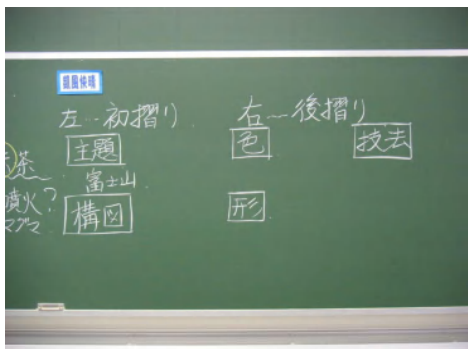 凱風快晴
左…初摺り 右…後摺り
主題 色 技去
茶
富士山
噴火?
マグマ
構図 形